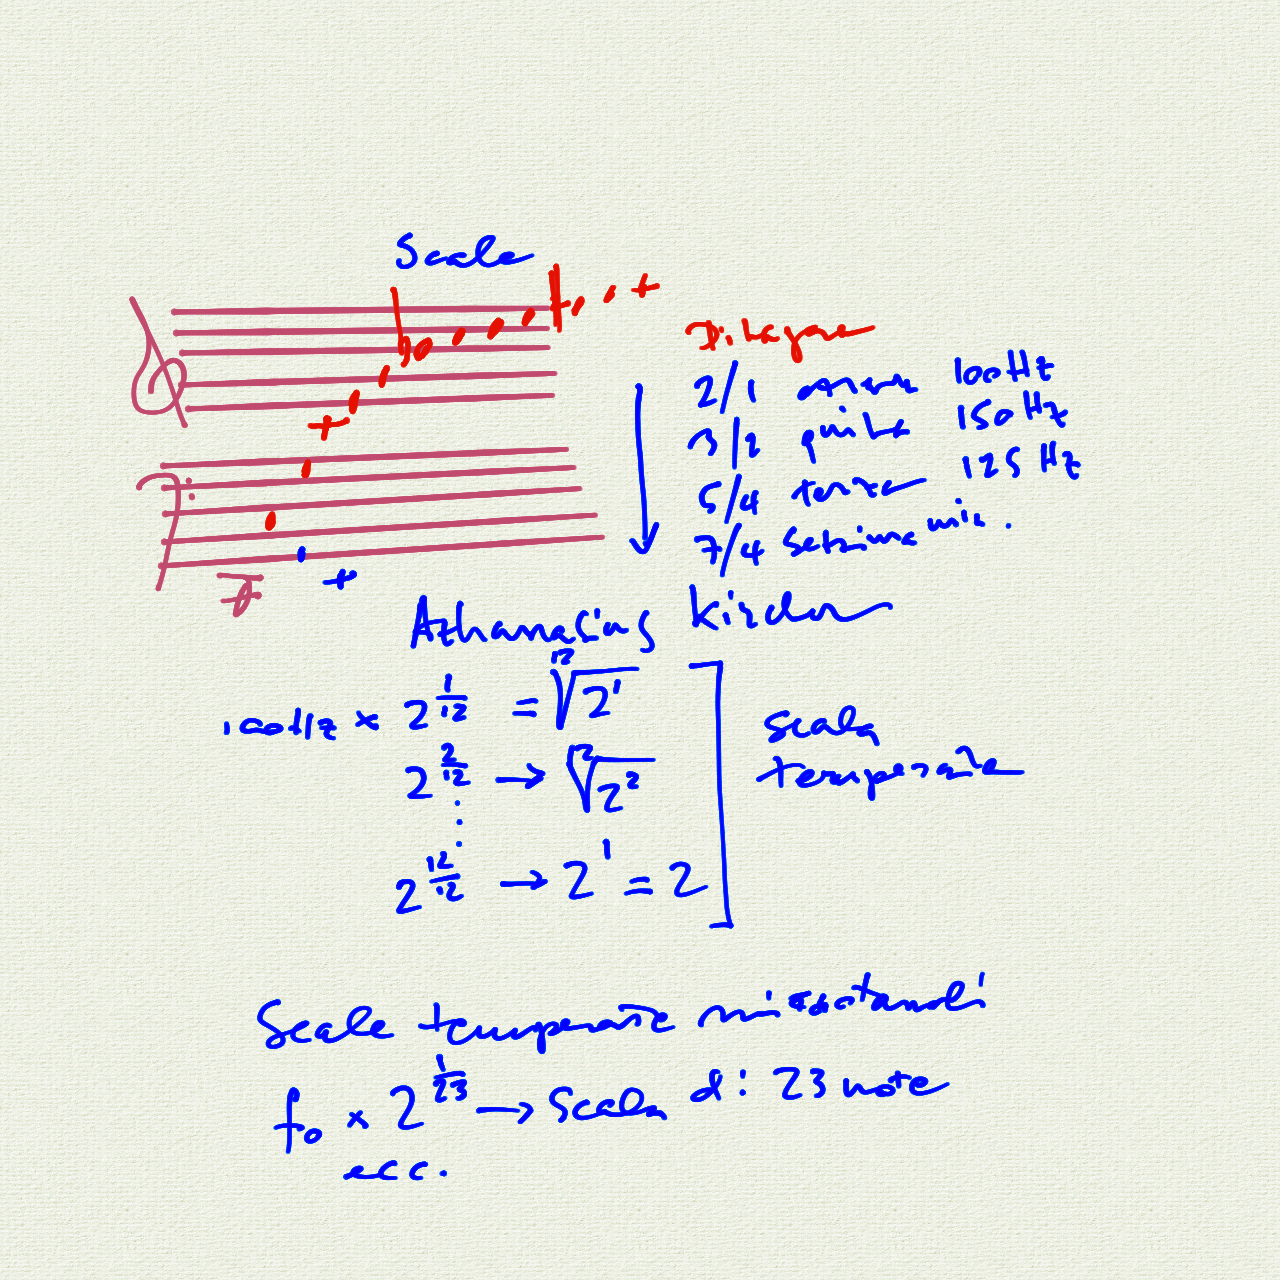 Scale
Pitagora
2/1 100Hz
3/2 quinta 150Hz
5/4 terza 125 Hz
7/4 settima min.
Athanasius Kircher
100Hz x 2^(1/12) = ¹²√2¹
2^(2/12) → ¹²√2²
2^(12/12) → 2¹ = 2
Scala
temperata
Scale temperate microtonali
f₀ x 2^(1/23) → Scala di 23 note
ecc.